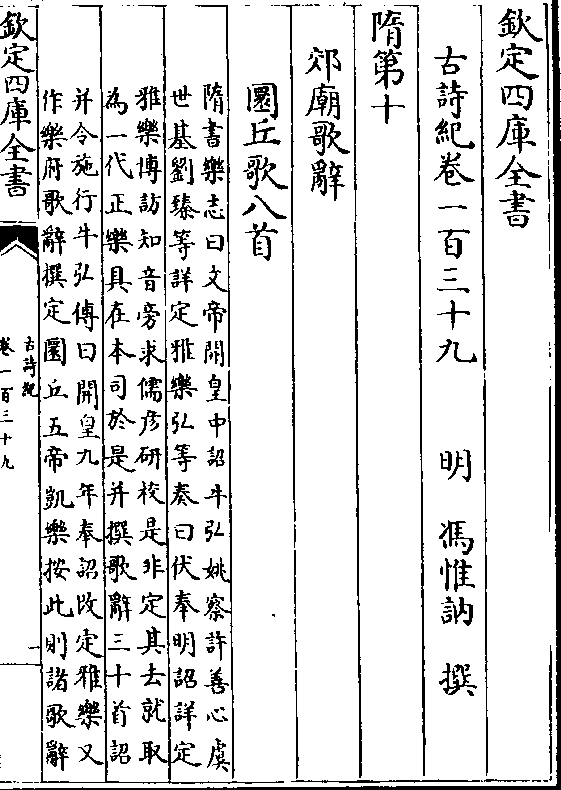 欽定四庫全書
古詩紀卷一百三十九 明 馮惟訥 撰
隋第十
郊廟歌辭
圜丘歌八首
隋書樂志曰文帝開皇中詔牛弘姚察許善心虞
世基劉臻等詳定雅樂弘等奏曰伏奉明詔詳定
雅樂博訪知音旁求儒彥研校是非定其去就取
為一代正樂具在本司於是并撰歌辭三十首詔
并令施行牛弘傳曰開皇九年奉詔改定雅樂又
作樂府歌辭撰定圜丘五帝凱樂按此則諸歌辭
欽定四庫全書
古詩紀
卷一百三十九
一